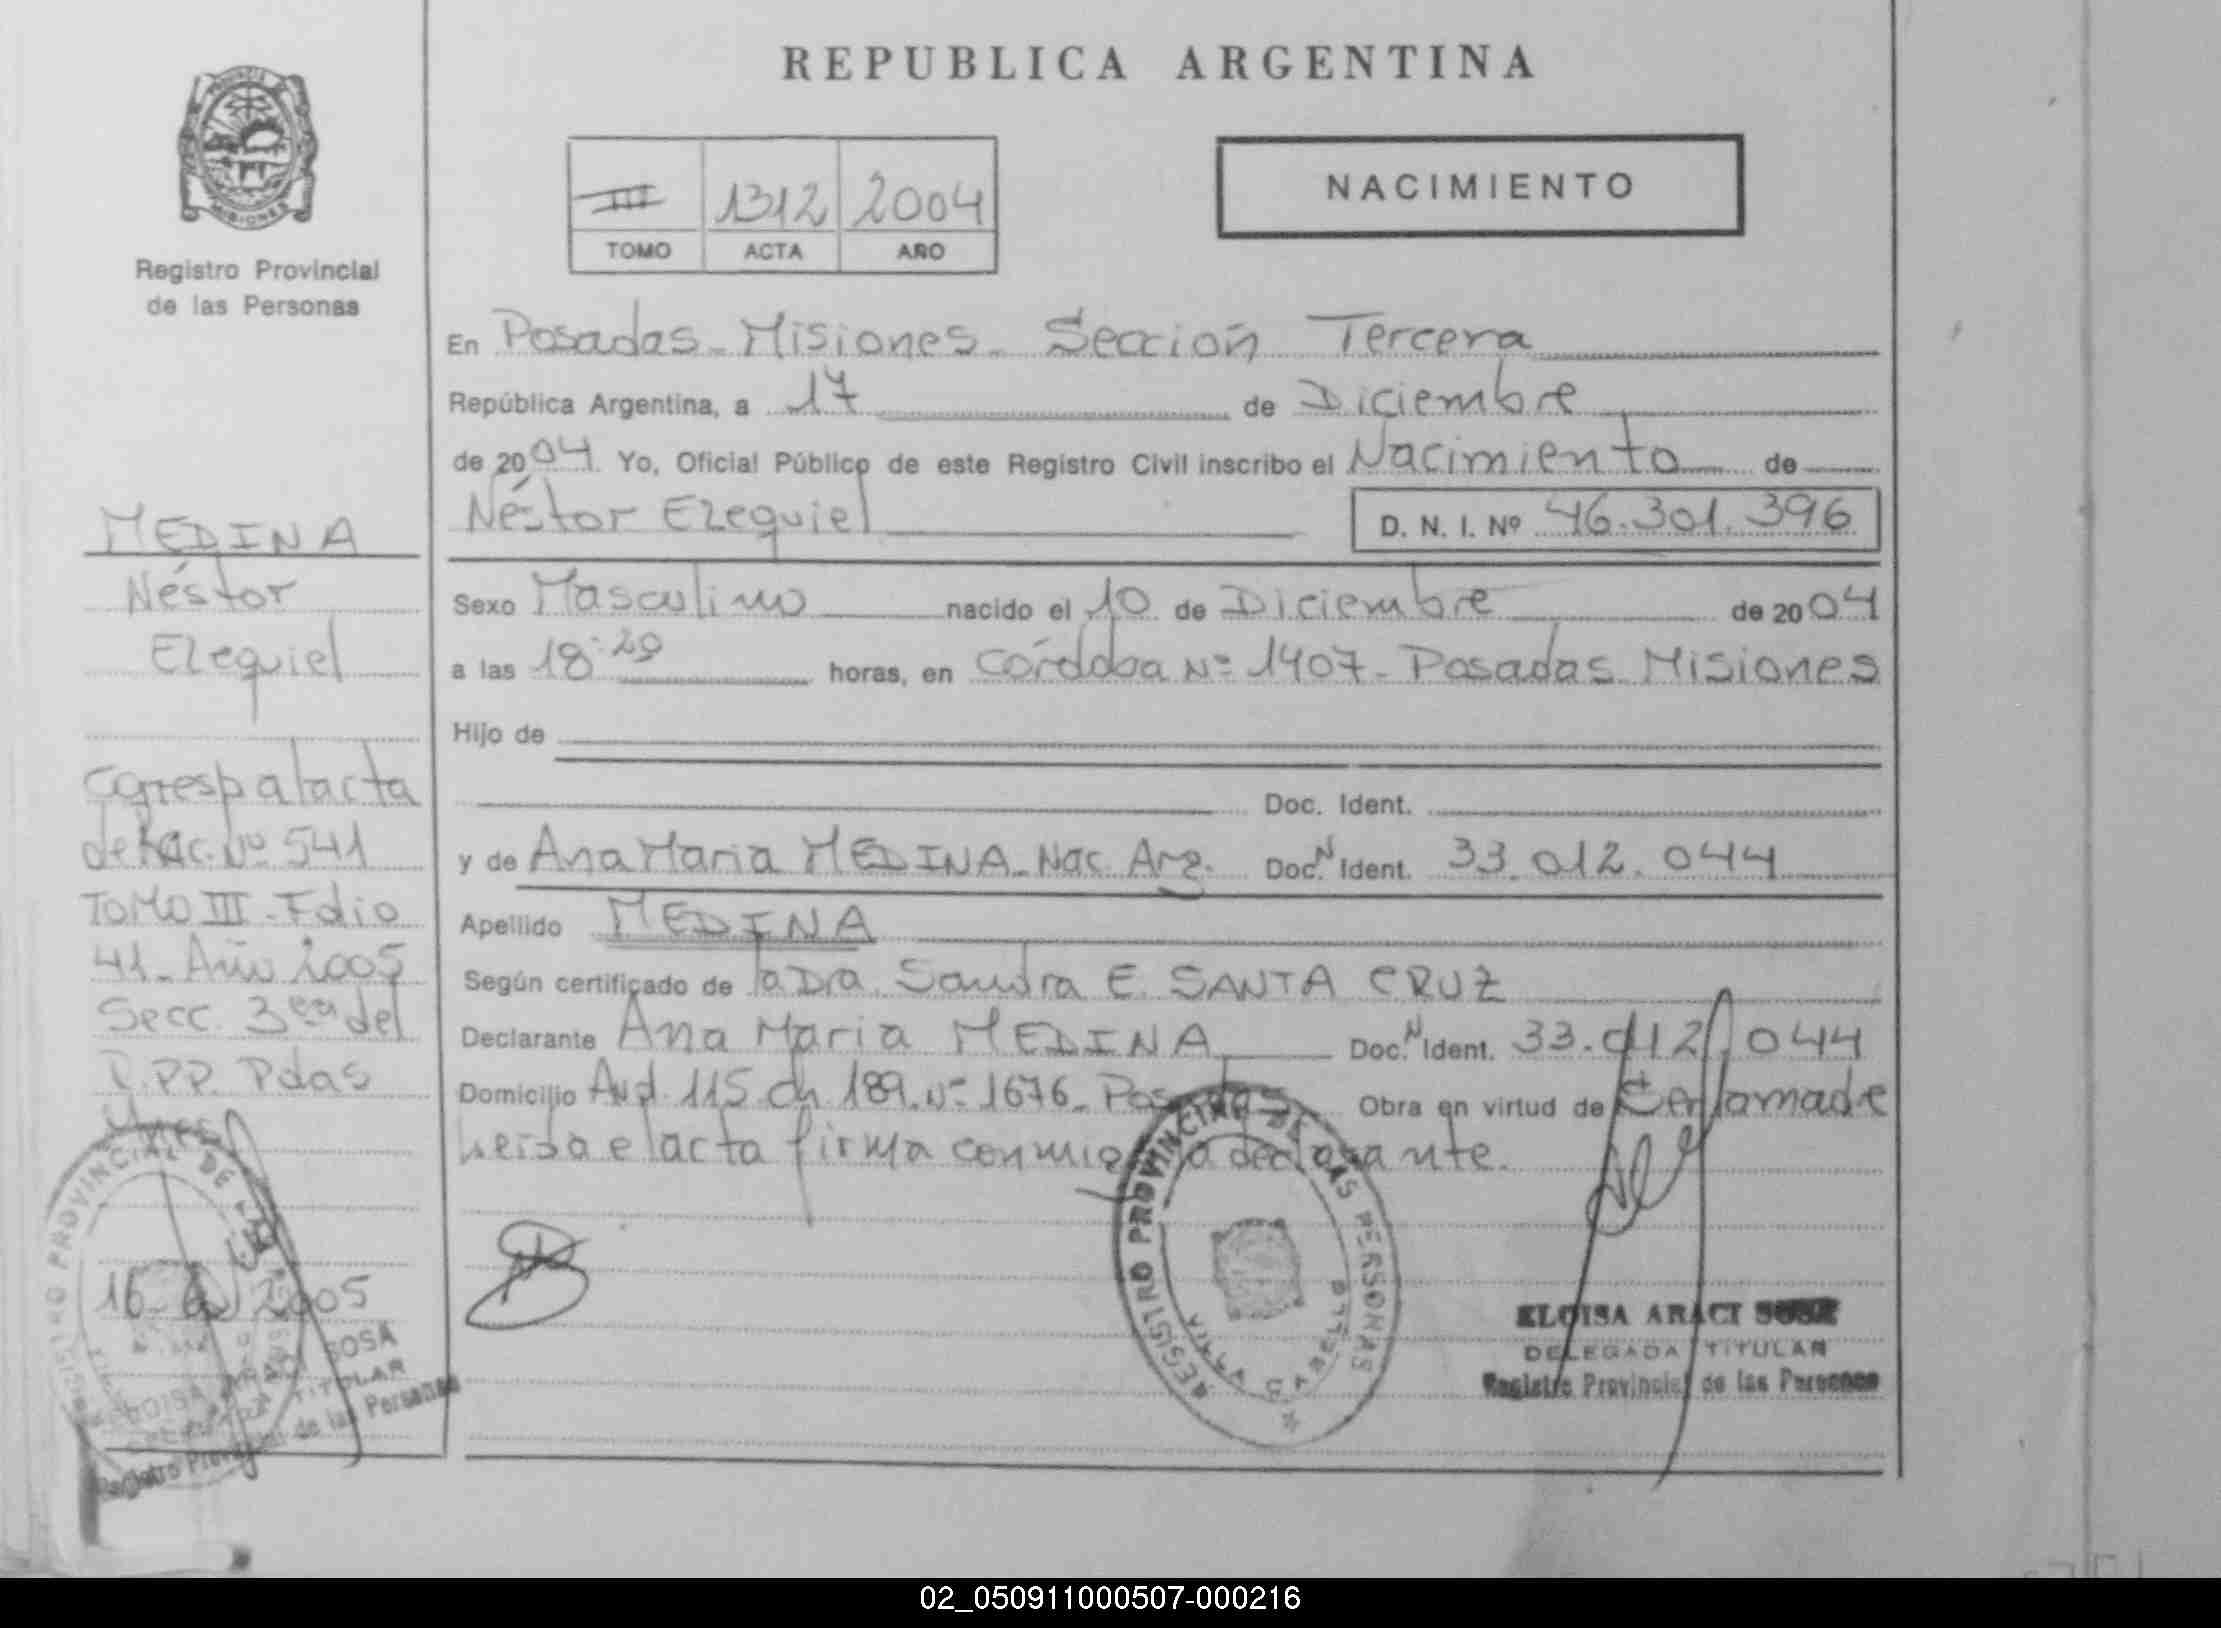 REPUBLICA ARGENTINA
PROVINCIA DE
MISIONES
Registro Provincial
de las Personas
III 1312 2004
TOMO ACTA AÑO
NACIMIENTO
En Posadas - Misiones - Sección Tercera
República Argentina, a 17 de Diciembre
de 2004 Yo, Oficial Público de este Registro Civil inscribo el Nacimiento de
Néstor Ezequiel D. N. I. Nº 46.301.396
Sexo Masculino nacido el 10 de Diciembre de 2004
a las 18:20 horas, en Córdoba Nº 1407 - Posadas Misiones
Hijo de
Doc. Ident.
y de Ana Maria MEDINA - Nac. Arg. Doc. N Ident. 33.012.044
Apellido MEDINA
Según certificado de la Dra. Sandra E. SANTA CRUZ
Declarante Ana Maria MEDINA Doc. N Ident. 33.012.044
Domicilio Avd. 115 ch. 189. Nº 1676 - Posadas Obra en virtud de
leida el acta firma conmigo la declarante.
MEDINA
Néstor
Ezequiel
Corresp al acta
de Rac. Nº 541
TOMO III - Folio
41 - Año 2005
Secc. 3era del
R.P.P. Pdas
16 2005
REGISTRO PROVINCIAL DE LAS PERSONAS
ELOISA ARACI SOSA
DELEGADA TITULAR
Registro Provincial de las Personas
REGISTRO PROVINCIAL DE LAS PERSONAS
ELOISA ARACI SOSA
DELEGADA TITULAR
Registro Provincial de las Personas
02_050911000507-000216